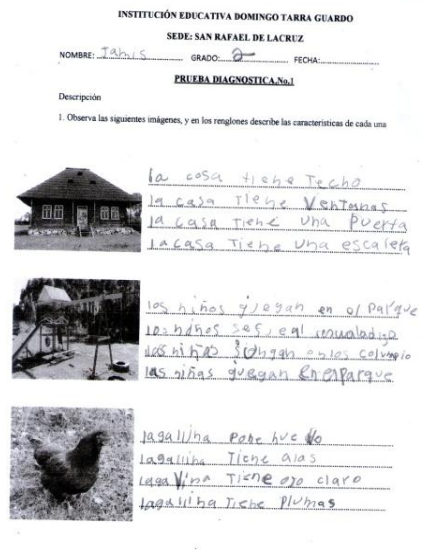 INSTITUCIÓN EDUCATIVA DOMINGO TARRA GUARDO
SEDE: SAN RAFAEL DE LACRUZ
NOMBRE: Jamis GRADO: 2 FECHA:
PRUEBA DIAGNOSTICA.No.1
Descripción
1. Observa las siguientes imágenes, y en los renglones describe las características de cada una
la cosa tiene Techo
la casa Tiene Ventanas
la casa Tiene una Puerta
la casa Tiene una escalera
los niños gjegan en el Parque
los niños
las niñas en los columpio
las niñas guegan En el Parque
la gallina Pone huevo
la gallina Tiene alas
laga Vina Tiene ojo claro
la gallina Tiene Plumas